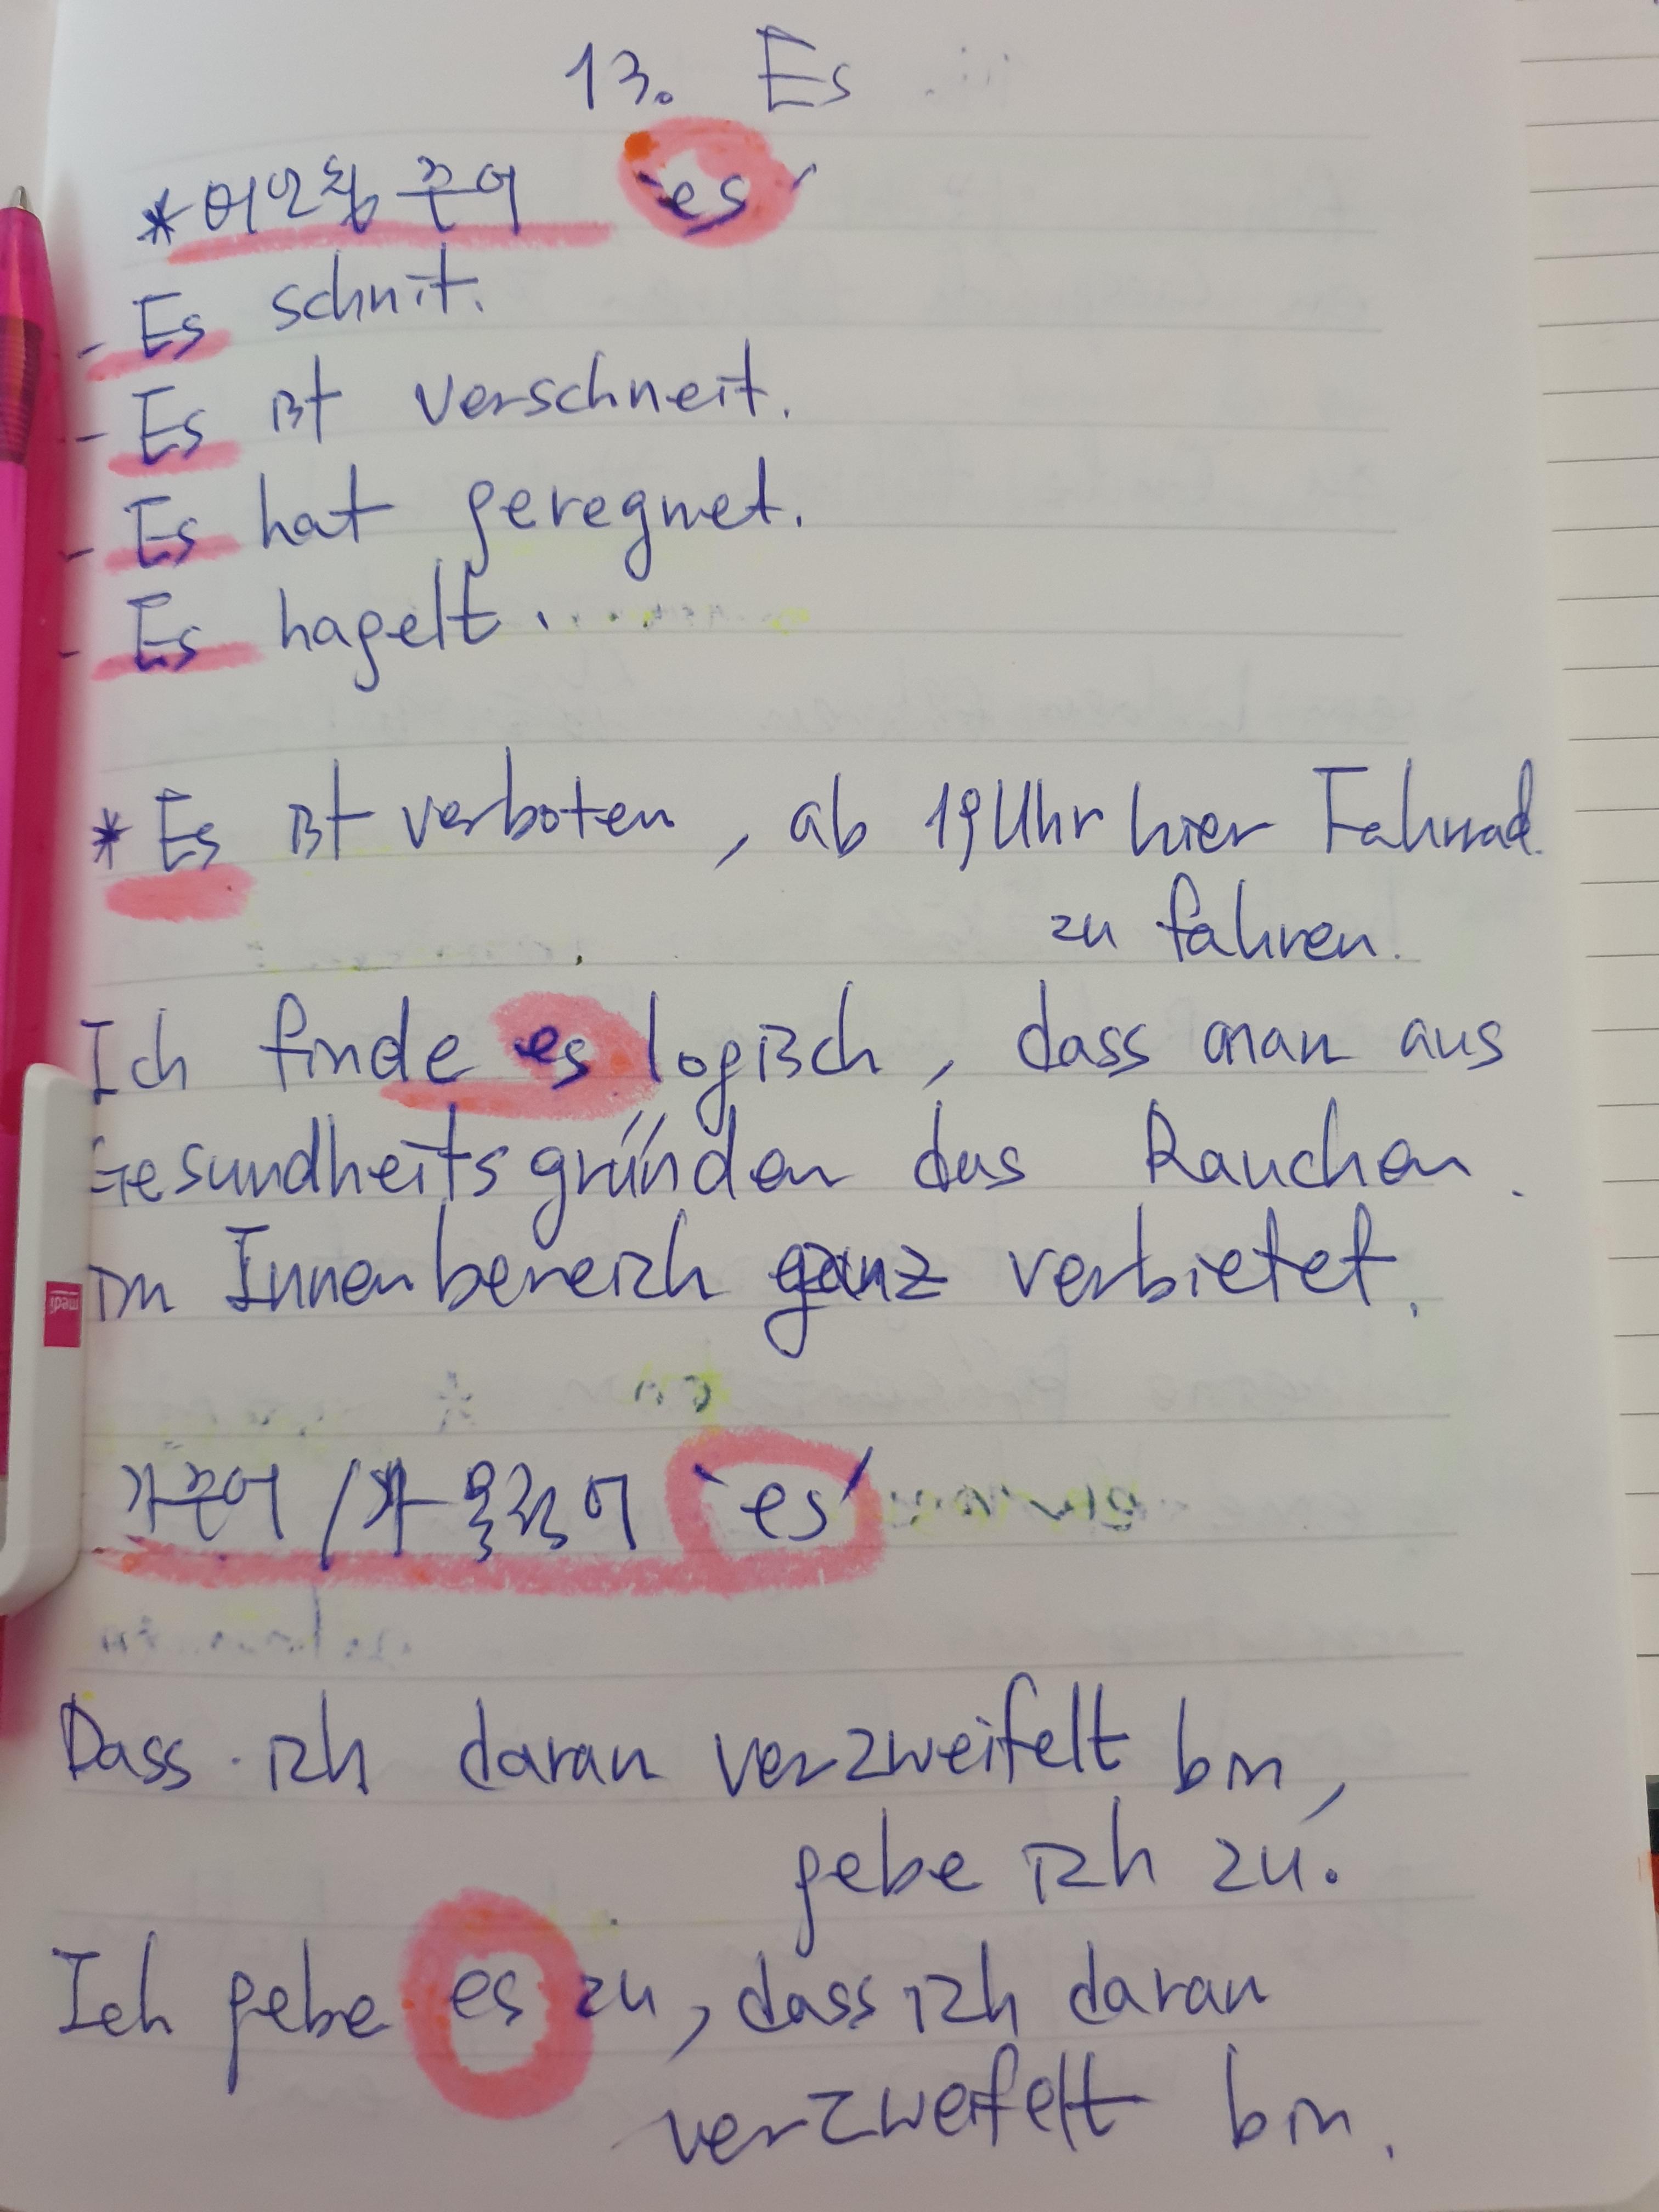 13. Es
*비인칭 주어 'es'
- Es schnit.
- Es ist verschneit.
- Es hat geregnet.
- Es hagelt.
* Es ist verboten, ab 19 Uhr hier Fahrrad
zu fahren.
Ich finde es logisch, dass man aus
Gesundheitsgründen das Rauchen
im Innenbereich ganz verbietet.
가주어 / 가목적어 'es'
Dass ich daran verzweifelt bin,
gebe ich zu.
Ich gebe es zu, dass ich daran
verzweifelt bin.
medi